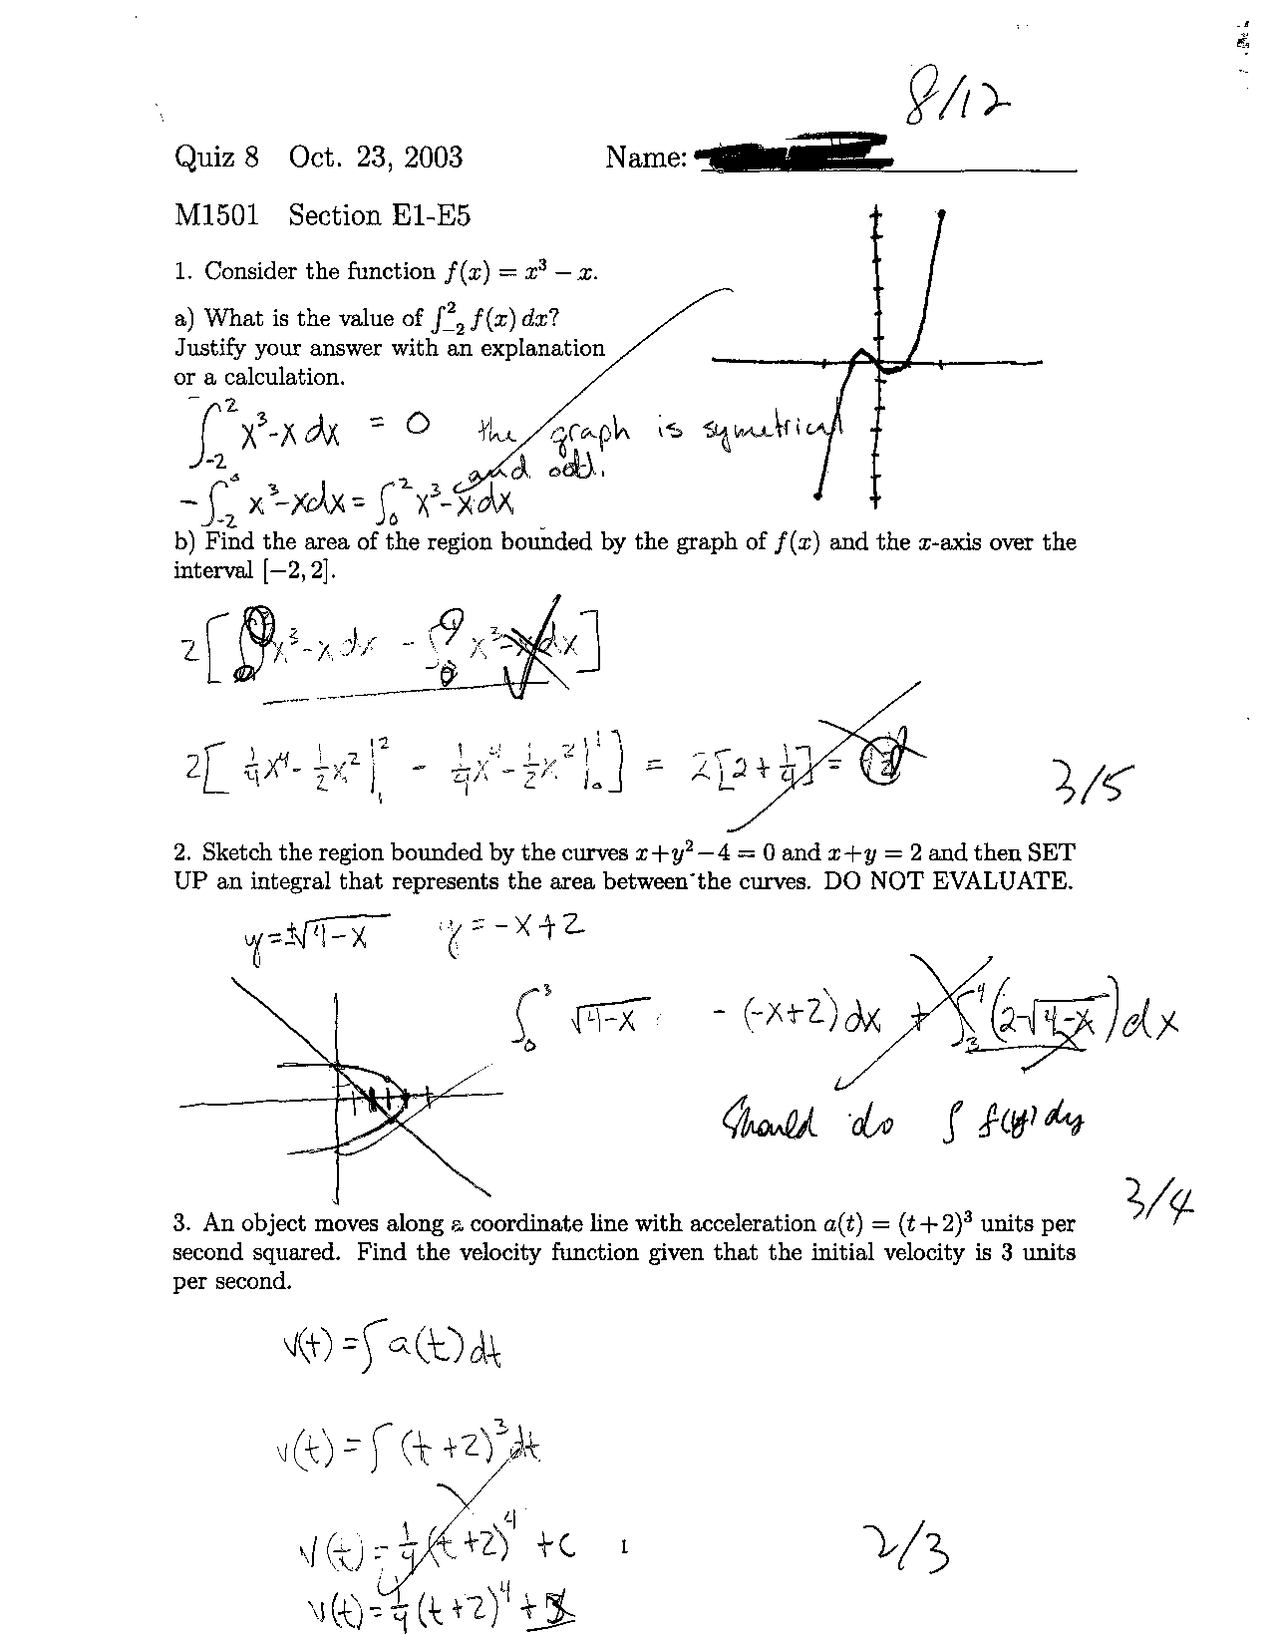 8/12
Quiz 8 Oct. 23, 2003 Name:
M1501 Section E1-E5
1. Consider the function f(x) = x³ − x.
a) What is the value of ∫₋₂² f(x) dx?
Justify your answer with an explanation
or a calculation.
∫₋₂² x³-x dx = 0 the graph is symetrical
and odd.
-∫₋₂⁰ x³-x dx = ∫₀² x³-x dx
b) Find the area of the region bounded by the graph of f(x) and the x-axis over the
interval [−2, 2].
2[∫ x³-x dx - ∫ x³-x dx]
2[¼x⁴-½x²|₁² - ¼x⁴-½x²|₀¹] = 2[2+¼] =
3/5
2. Sketch the region bounded by the curves x+y²−4 = 0 and x+y = 2 and then SET
UP an integral that represents the area between the curves. DO NOT EVALUATE.
y=±√4-x y=-x+2
∫₀³ √4-x - (-x+2)dx + ∫₃⁴(2-√4-x)dx
Should do ∫ f(y) dy
3/4
3. An object moves along a coordinate line with acceleration a(t) = (t+2)³ units per
second squared. Find the velocity function given that the initial velocity is 3 units
per second.
v(t) = ∫a(t)dt
v(t) = ∫(t+2)³dt
v(t) = ¼(t+2)⁴ +c
1
2/3
v(t) = ¼(t+2)⁴ +